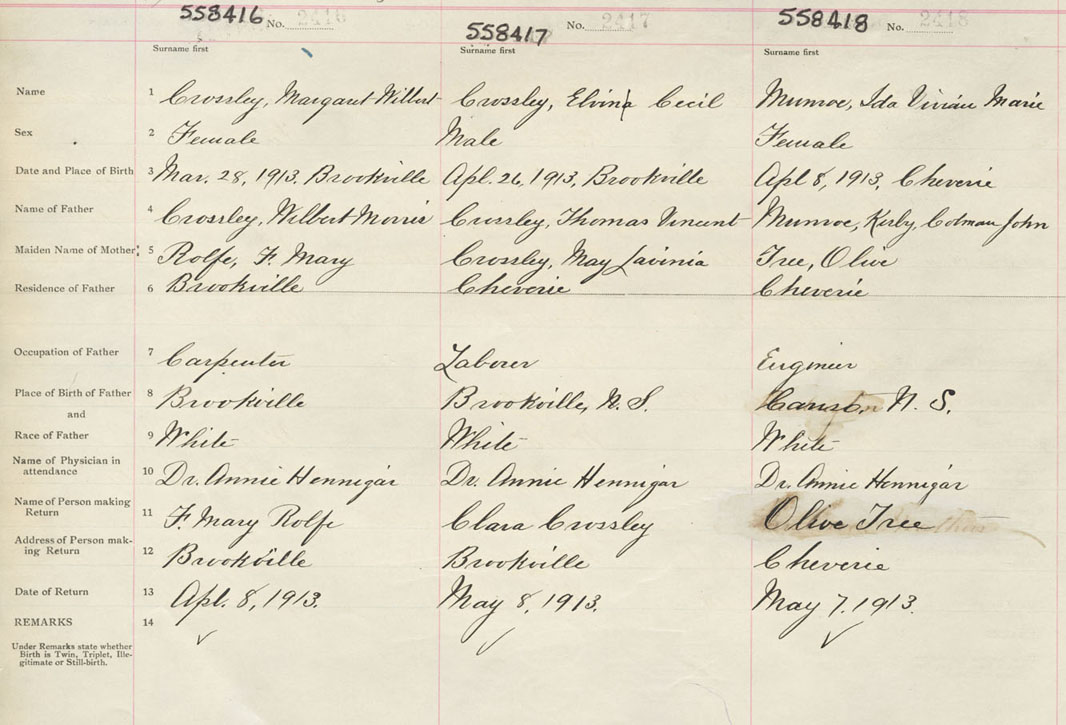 558416 No. 2416 558417 No. 2417 558418 No. 2418
Surname first Surname first Surname first
Name 1 Crossley, Margaret Wilbert Crossley, Elvina Cecil Munroe, Ida Vivian Marie
Sex 2 Female Male Female
Date and Place of Birth 3 Mar. 28, 1913, Brookville Apl. 26, 1913, Brookville Apl 8, 1913, Cheverie
Name of Father 4 Crossley, Wilbert Morris Crossley, Thomas Vincent Munroe, Kirby, Colman John
Maiden Name of Mother 5 Rolfe, F. Mary Crossley, May Lavinia Tree, Olive
Residence of Father 6 Brookville Cheverie Cheverie
Occupation of Father 7 Carpenter Laborer Engineer
Place of Birth of Father 8 Brookville Brookville, N.S. N. S.
and
Race of Father 9 White White White
Name of Physician in
attendance 10 Dr. Annie Hennigar Dr. Annie Hennigar Dr. Annie Hennigar
Name of Person making
Return 11 F. Mary Rolfe Clara Crossley Olive Tree
Address of Person mak-
ing Return 12 Brookville Brookville Cheverie
Date of Return 13 Apl. 8, 1913. May 8, 1913. May 7, 1913.
REMARKS 14
Under Remarks state whether
Birth is Twin, Triplet, Ille-
gitimate or Still-birth.